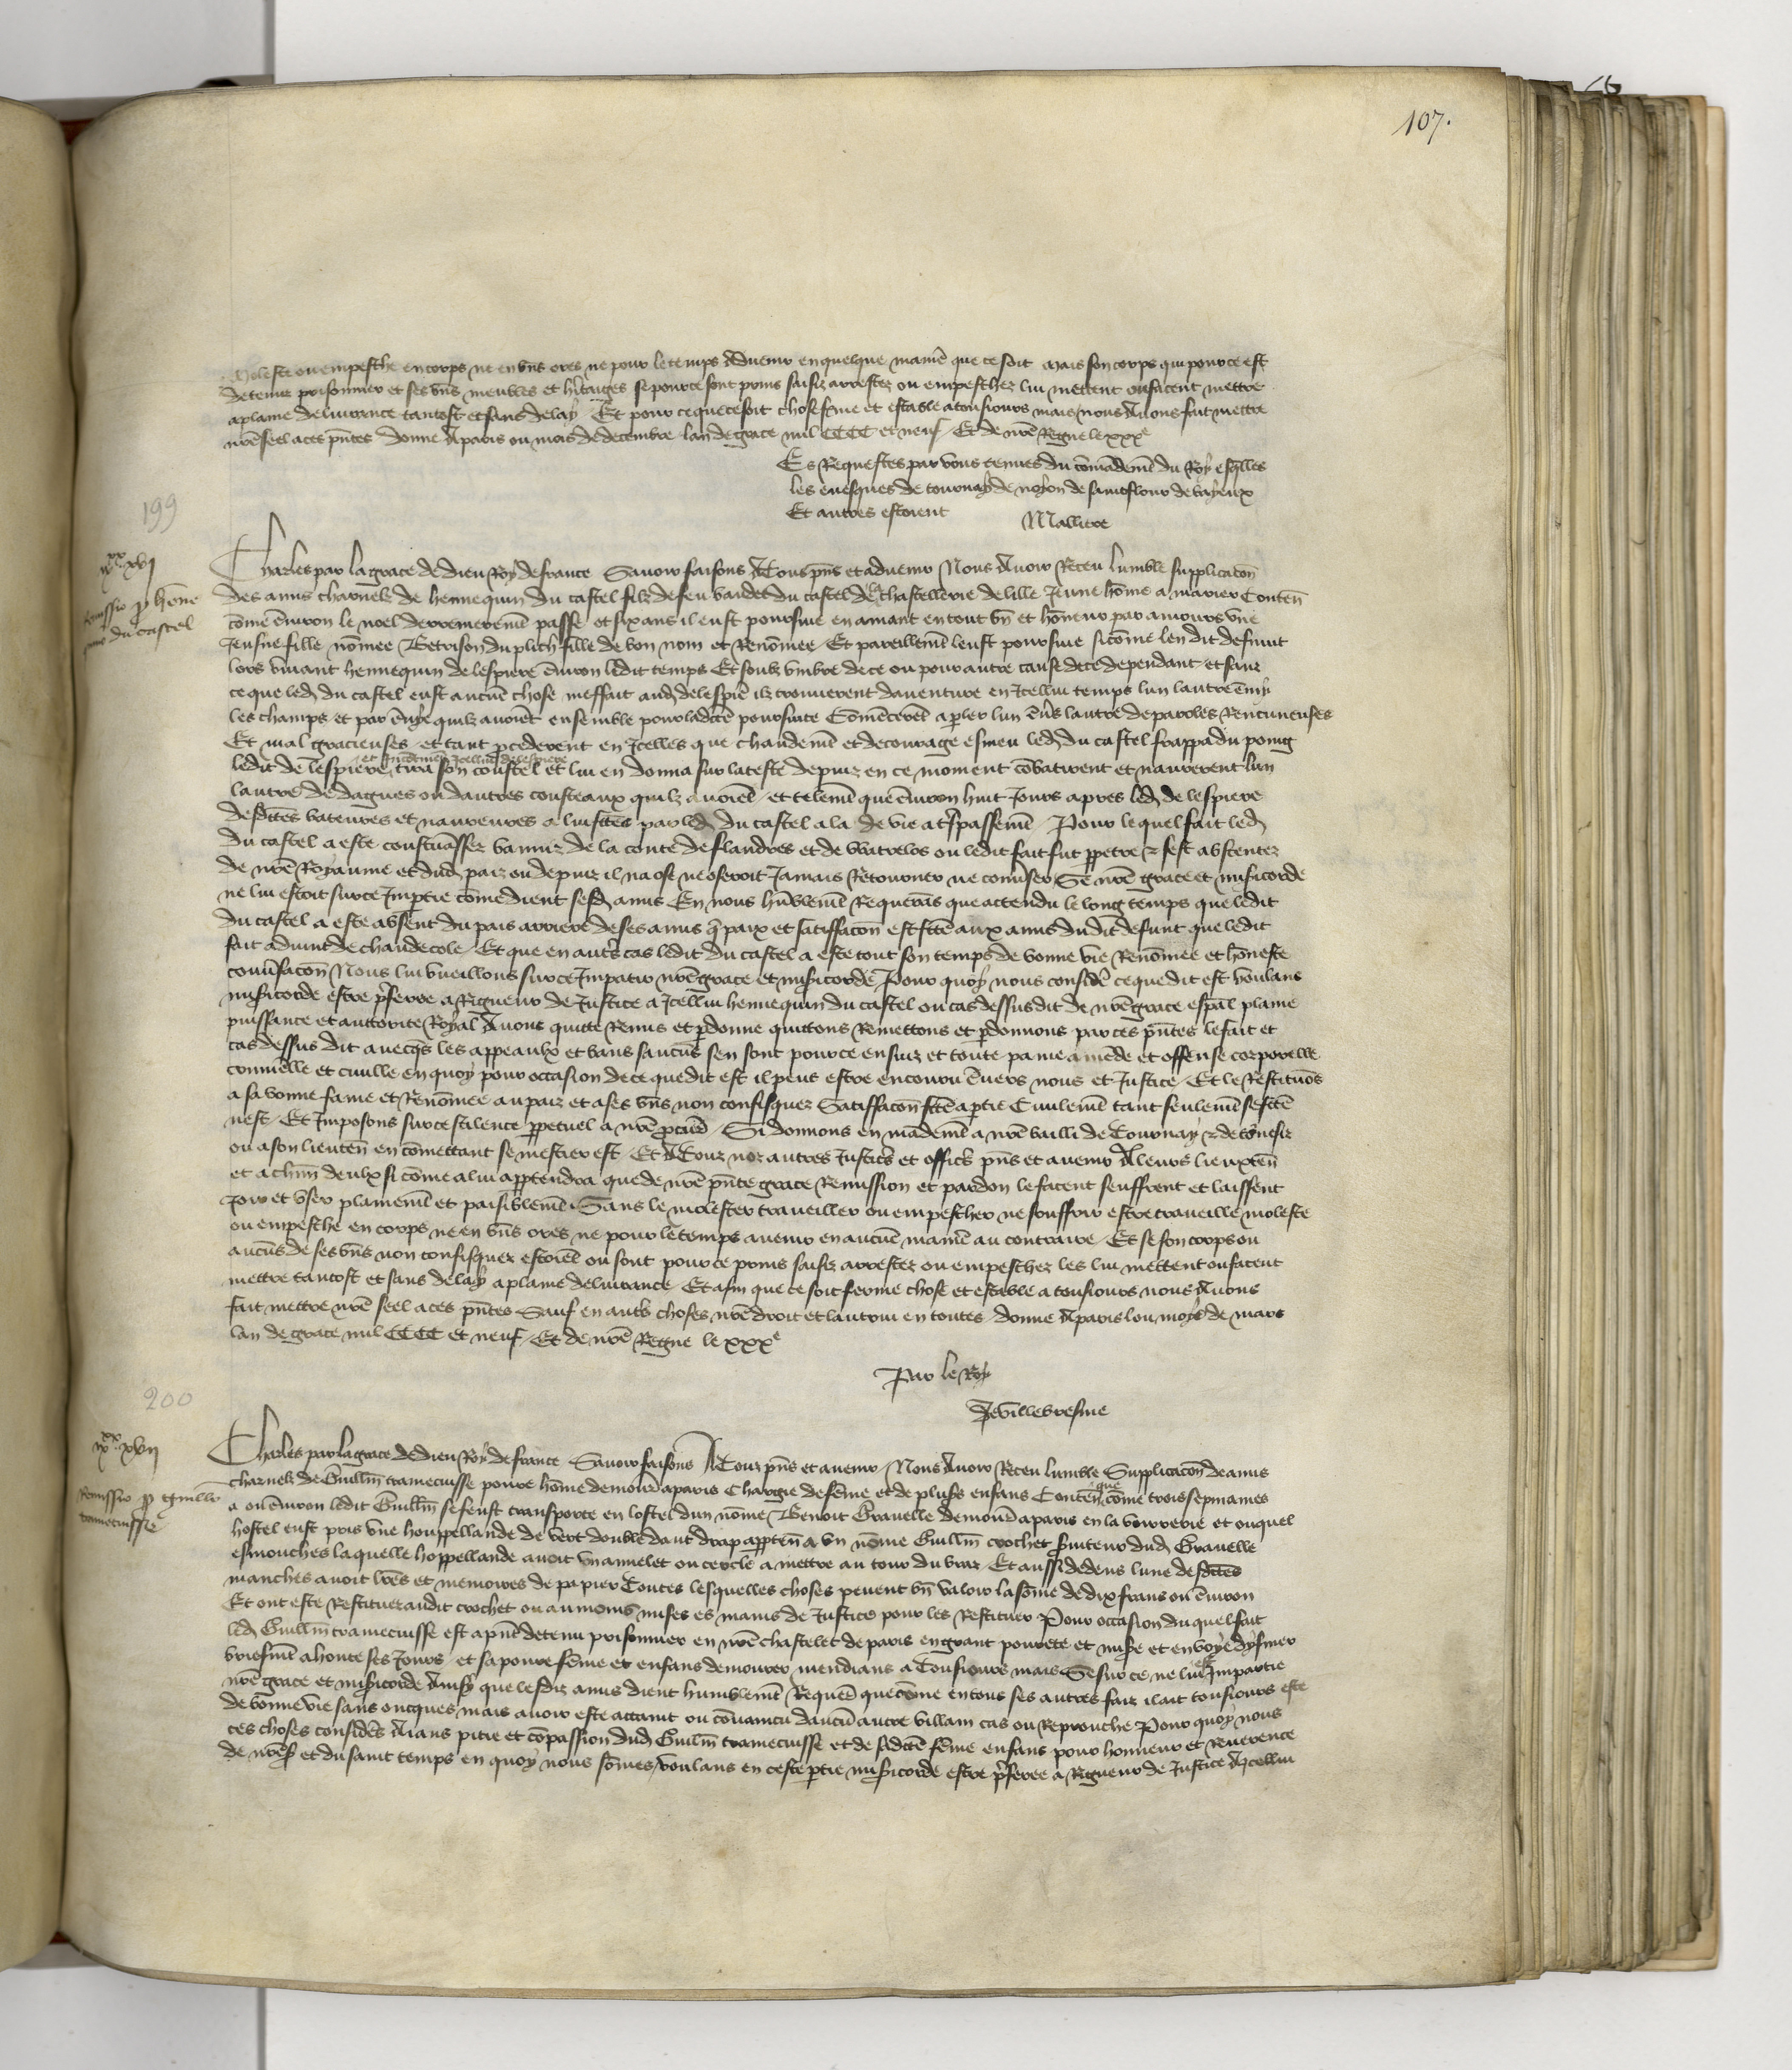 107.
moleste ou empesche en corps ne en bns ores ne pour le temps Aduenir en quelque manie que ce soit mais son corps qui pour ce est
detenu prisonnier et ses bns meubles et hitaiges se pource sont prins saisiz arrestez ou empeschez lui mettent ou facent mettre
aplaine deliurance tantost et sans delay Et pour ce que ce soit chose ferme et estable atousiours mais nous Auons fait mettre
nre seel aces pntes donne A paris ou mois de decembre lan de grace mil CCCC et neuf Et de nre Regne le xxxe
Es Requestes par vous tenues du comandemt du Roy esqlles
les euesques de tournay de noyon de saint flour de bayeux
Et autres estoient Mallierre
199
ixxx xvj
Remissio p hene
quino du castel
Charles par la grace de dieu Roy de france Sauoir faisons A Tous pns et aduenir Nous Auoir Receu lumble supplicacon
des amis charnelz de hennequin du castel filz de feu baudet du castel de la chastellerie de lille Jeune home a marier Conten
come enuiron le noel derrenieremt passe et six ans il eust poursuie en amant en tout bn et honeur par amours vne
Jeusne fille nomee Betrison du plich fille de bon nom et Renomee Et pareillemt leust poursuie si come len dit defunt
lors viuant hennequin de lespiere enuiron ledit temps Et soubz vmbre de ce ou pour autre cause de ce dependant et sanz
ce que led du castel eust aucune chose meffait aud de lespiere ilz trouuerent dauenture en Jcellui temps lun lautre emy
les champs et par enuye quilz auoient ensemble pour ladicte poursuite Comencerent a pler lun enuers lautre de paroles Rencuneuses
Et mal gracieuses et tant pcederent en Jcelles que chaudemt et de courage esmeu led du castel frappa du poing
ledit de lespiere et Jncontinent Jcellui de lespiere tira son coustel et lui en donna sur la teste depuiz en ce moment combatirent et naurerent lun
lautre de dagues ou dautres cousteaux quilz auoient et telemt que enuiron huit Jours apres led de lespiere
desdictes bateures et naureures a lui fctes par led du castel ala de vie a trespassemt Pour lequel fait led
du castel a este banniz de la conte de flandres et de Watrelos ou ledit fait fut ppetre & sest absentez
de nre Royaume et dud pais ou depuis il na ose ne oseroit Jamais Retourner ne conuser Se nre grace et misicorde
ne lui estoit sur ce Jmptie come dient sesd amis En nous humblemt Requerans que attendu le long temps que ledit
du castel a este absent du pais arriere de ses amis q paix et satisfacon est fcte aux amis dudit defunt que ledit
fait aduint de chaude cole Et que en autres cas ledit du castel a este tout son temps de bonne vie Renomee et honeste
conusacon Nous lui vueillons sur ce Jmpartir nre grace et misicorde Pour quoy nous considere ce que dit est Voulans
misicorde estre pferee a Rigueur de Justice a Jcellui hennequin du castel ou cas dessusdit de nre grace espal plaine
puissance et auttorite Royal Auons quitte Remis et pdonne quittons Remettons et pdonnons par ces pntes le fait et
cas dessus dit auecqs les appeaulx et bans saucuns sen sont pour ce ensuiz et toute paine amede et offense corporelle
criminelle et ciuille en quoy pour occasion de ce que dit est il peut estre encouru enuers nous et Justice Et le Restituons
a sa bonne fame et Renomee au paiz et a ses bns non confisquez Satisfacon fcte aptie Ciuilemt tant seulemt se fcte
nest Et Jmposons sur ce scilence ppetuel a nre pcur Si donnons en mademt a nre bailli de Tournay & de tournesiz
ou a son lieuten en comettant se mestier est Et A Touz noz autres Justiciers et officiers pns et auenir A leurs lieuxten
et a chun deulx si come a lui apptendra que de nre pnte grace Remission et pardon le facent seuffrent et laissent
Joir et vser plainemt et paisiblemt Sans le molester trauiller ou empescher ne souffrir estre traueille moleste
ou empesche en corps ne en bns ores ne pour le temps auenir en aucune manie au contraire Et se son corps ou
aucuns de ses bns non confisquez estoient ou sont pour ce prins saisiz arrestez ou empeschez les lui mettent ou facent
mettre tantost et sans delay a plaine deliurance Et afin que ce soit ferme chose et estable a tousiours nous Auons
fait mettre nre seel a ces pntes Sauf en autres choses nre droit et lautrui en toutes donne A paris ou moys de mars
lan de grace mil CCCC et neuf Et de nre Regne le xxxe
Par le Roy
Jevillebresme
200
ixxx xvij
Remissio p Guillo
tramecuisse
Charles par la grace de dieu Roy de france Sauoir faisons A Touz pns et auenir Nous Auoir Receu lumble Supplicacon de amis
charnelz de Guillm tramecuisse poure home demour aparis Chargie de feme et de plusrs enfans Conten que come trois sepmaines
a ou enuiron ledit Guillm se feust transporte en lostel dun nome Benoit Grauelle demour aparis en la voirrerie et ouquel
hostel eust pris vne houppellande de vert double dau drap apptena a vn nome Guillm crochet suiteur dud Grauelle
es mouches laquelle hoppellande auoit vn annelet ou cercle a mettre au tour du braz Et aussi dedens lune desdictes
manches auoit lres et memoires de papier Toutes lesquelles choses peuent bn valoir la some de dix frans ou enuiron
Et ont este Restituez audit crochet ou au moins mises es mains de Justice pour les Restituer Pour occasion du quel fait
led Guillm tramecuisse est apnt detenu prisonnier en nre chastelet de paris en grant pourete et misie et en voye dy finer
briefmt a honte ses Jours et sa poure feme et enfans demourer mendians a Tousiours mais Se sur ce ne lui est Jmpartie
nre grace et misicorde Ainsy que lesdiz amis dient humblemt Requer que come en tous ses autres faiz il ait tousiours este
de bonne vie sans oncques mais auoir este attaint ou conuaincu daucun autre villain cas ou Reprouche Pour quoy nous
ces choses consideres Aians pitie et compassion dud Guillm tramecuisse et de sadicte feme enfans pour honneur et Reuerence
de nres et du saint temps en quoy nous somes Voulans en ceste ptie misicorde estre pferee a Rigueur de Justice A Jcellui